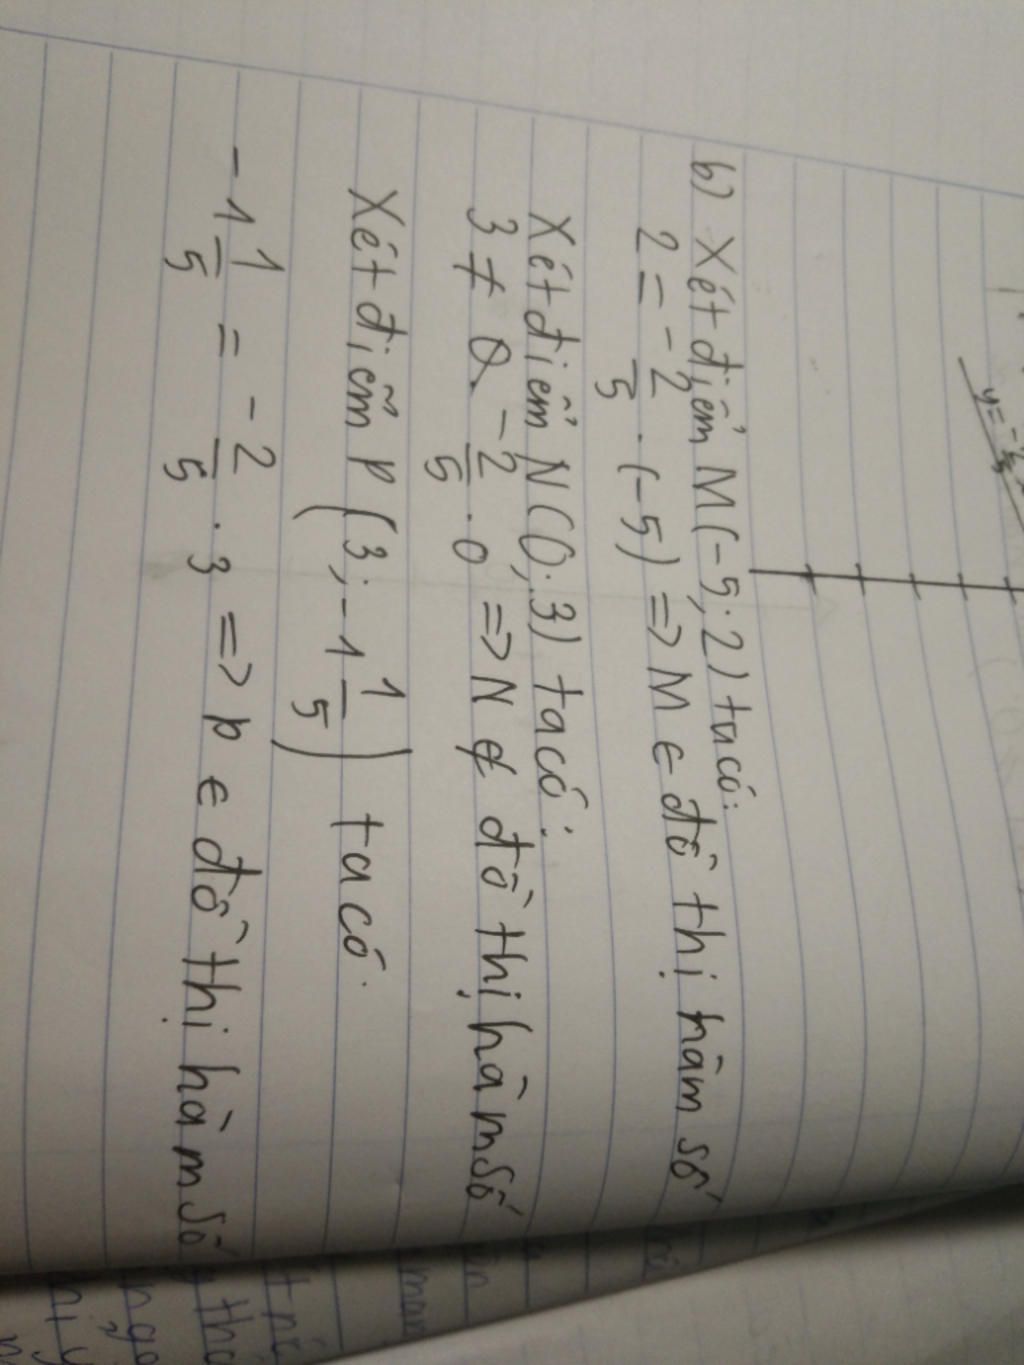 b) Xét điểm M(-5; 2) ta có:
2 = -2/5 . (-5) => M ∈ đồ thị hàm số
Xét điểm N(0; 3) ta có:
3 ≠ -2/5 . 0 => N ∉ đồ thị hàm số
Xét điểm P (3; -1 1/5) ta có.
-1 1/5 = -2/5 . 3 => P ∈ đồ thị hàm số